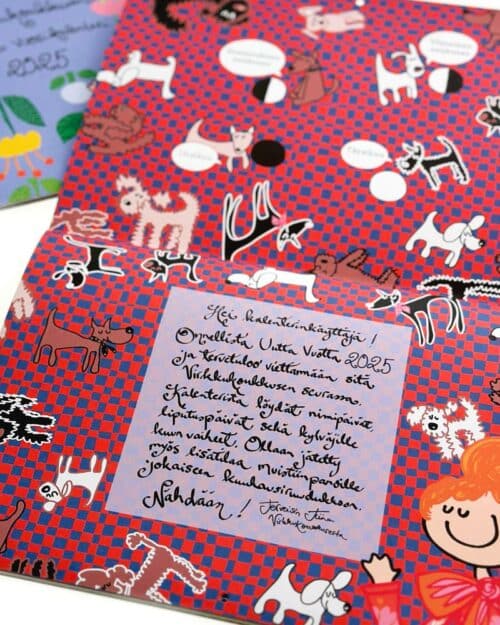 2025
Täysikuu
Hei kalenterinkäyttäjä!
Onnellista Uutta Vuotta 2025
ja tervetuloa viettämään sitä
Virkkukoukkusen seurassa.
Kalenterista löydät nimipäivät,
liputuspäivät sekä kylväjille
kuun vaiheet. Ollaan jätetty
myös lisätilaa muistiinpanoille
jokaiseen kuukausiruudukkoon.
Nähdään! Terveisin
Virkkukoukkusesta